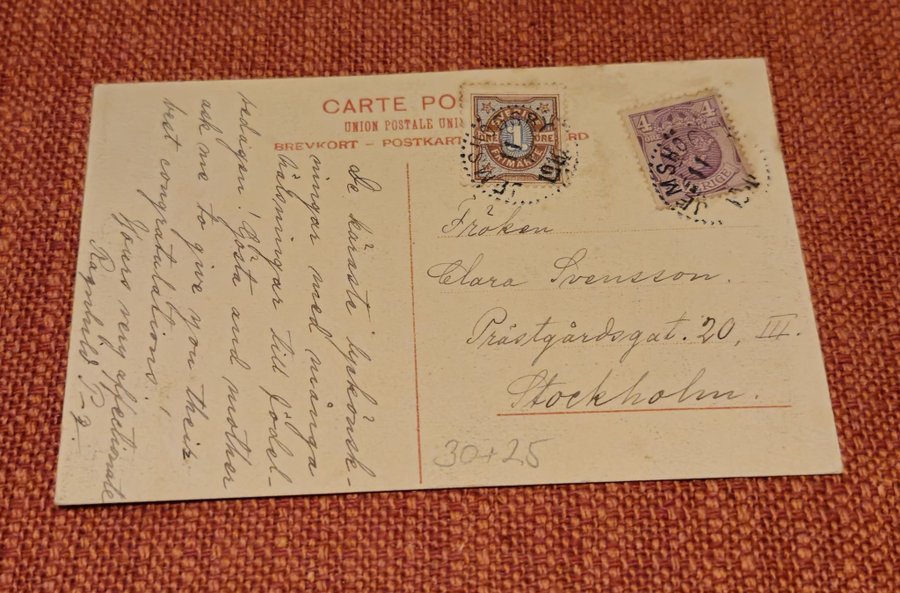 CARTE PO
UNION POSTALE UNI
BREVKORT - POSTKART RD
1
ÖRE ÖRE
FRIMÄRKE
4 4
SVERIGE
JEMSHÖG
11
De käraste lyckönsk-
ningar med många
hälsningar till födel-
sedagen! Gösta and mother
ask me to give you their
best congratulations!
Yours very affectionate
Ragnhild P-z.
Fröken
Clara Svensson.
Prästgårdsgat. 20, III.
Stockholm.
30+25